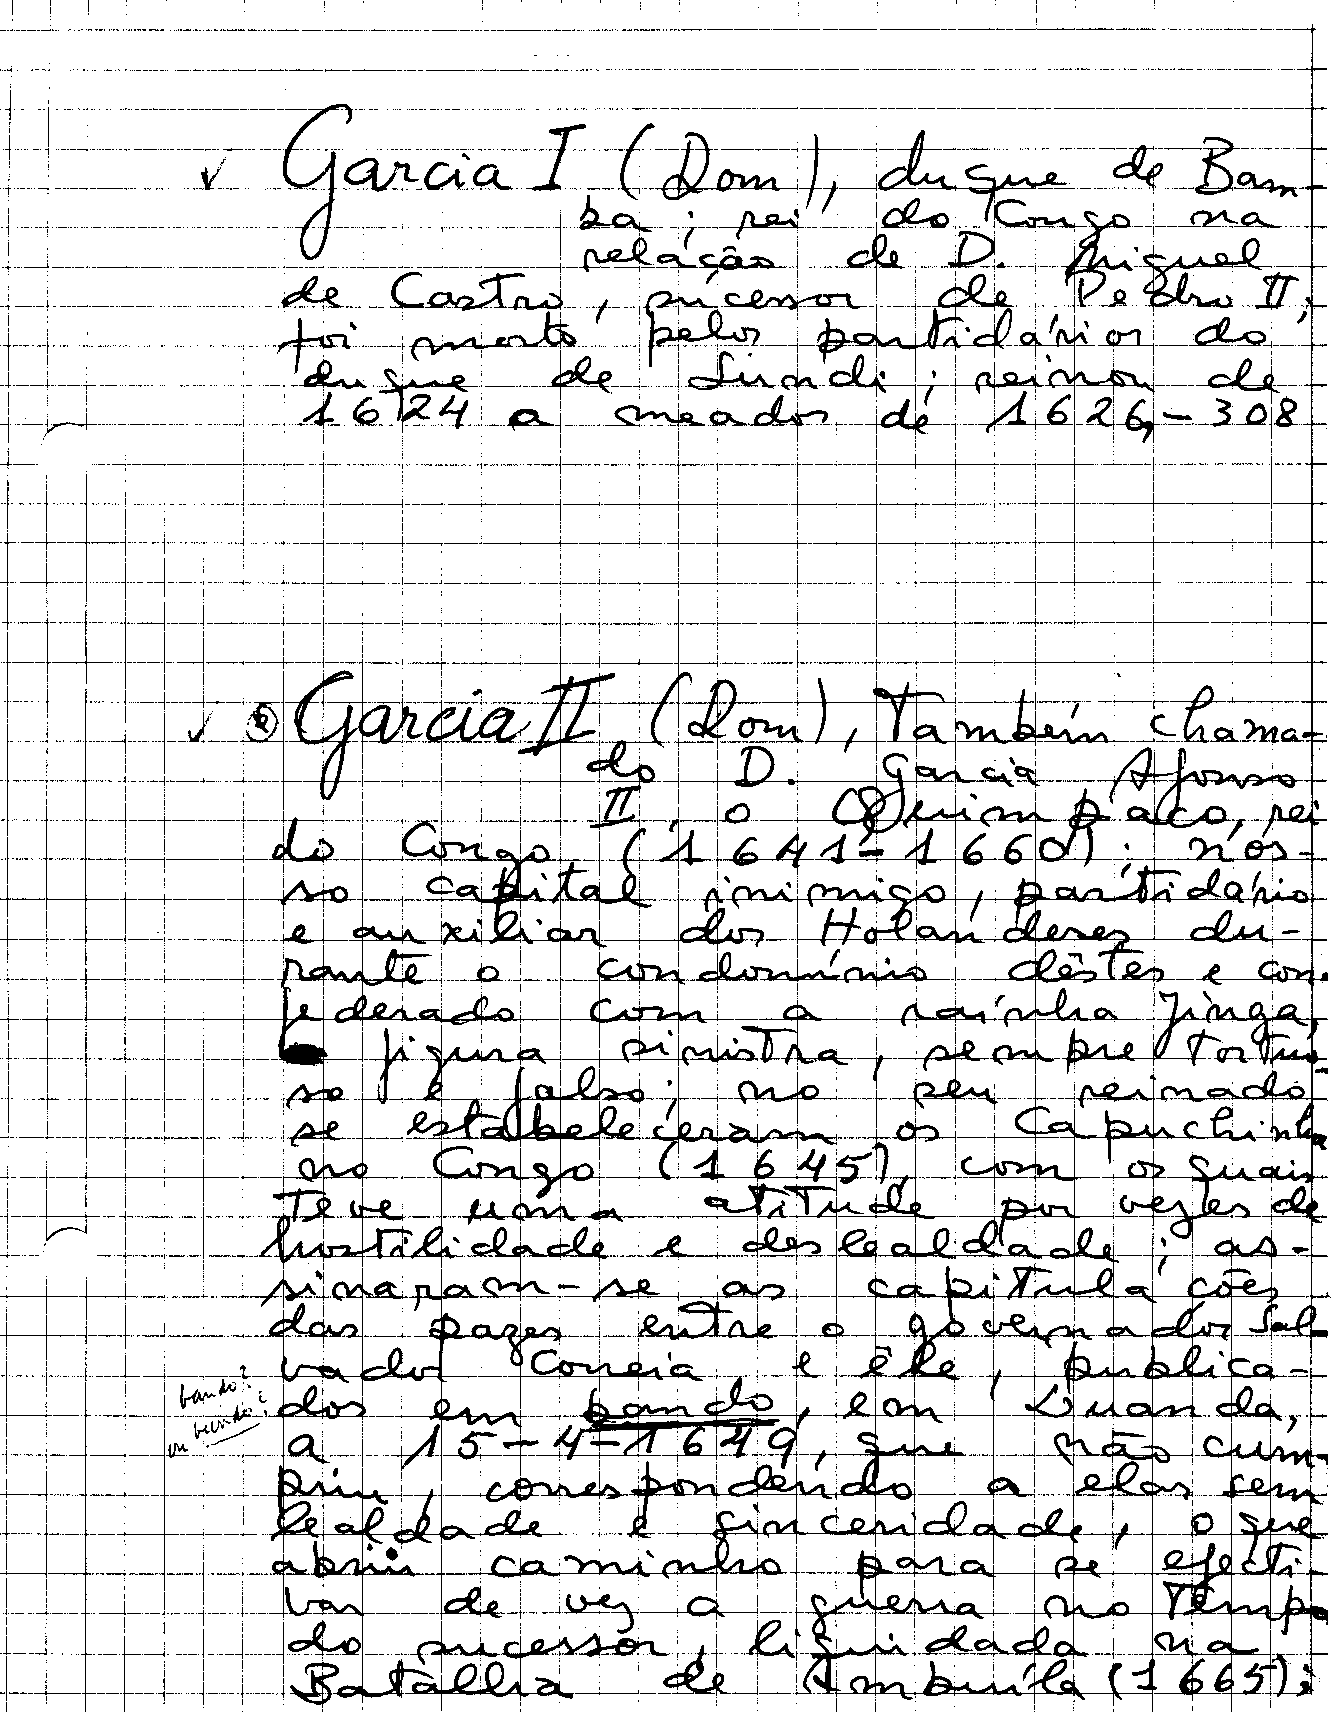 ✓ Garcia I (Dom), duque de Bam-
ba; rei do Congo na
relação de D. Miguel
de Castro, sucessor de Pedro II;
foi morto pelos partidários do
duque de Sundi; reinou de
1624 a meados de 1626, - 308
✓ Garcia II (Dom), também chama-
do D. Garcia Afonso
II, o Quimpaco, rei
do Congo (1641-1660); nos-
so capital inimigo, partidário
e auxiliar dos Holandeses du-
rante o condomínio dêstes e con-
federado com a rainha Jinga,
figura sinistra, sempre tortuo-
so e falso; no seu reinado
se estabeleceram os Capuchinhos
no Congo (1645), com os quais
teve uma atitude por vezes de
hostilidade e deslealdade; as-
sinaram-se as capitulações
das pazes entre o governador Sal-
vador Correia e êle, publica-
bando?
dos em bando, em Luanda,
ou
a 15-4-1649, que não cum-
priu, correspondendo a elas sem
lealdade e sinceridade, o que
abriu caminho para se efecti-
var de vez a guerra no tempo
do sucessor, liquidada na
Batalha de Ambuíla (1665);